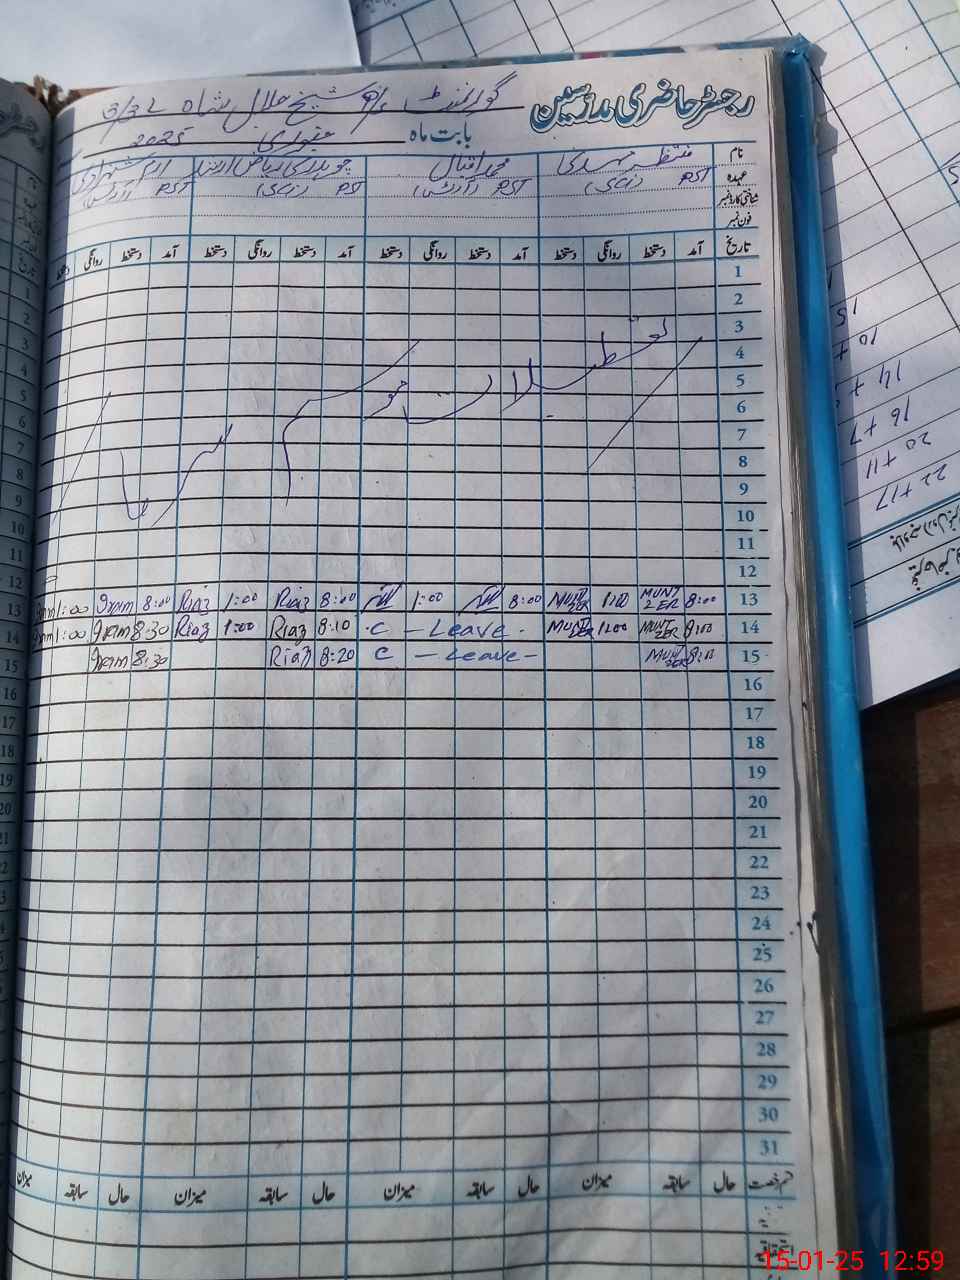 رجسٹر حاضری مدرسین گورنمنٹ شیخ جلال شاہ 3/3L
بابت ماہ جنوری 2025
نام منتظر مہدی محمد اقبال چوہدری ریاض
عہدہ PST (sci) PST (آرٹس) PST (sci) PST (آرٹس)
شناختی کارڈ نمبر
فون نمبر
تاریخ آمد دستخط روانگی دستخط آمد دستخط روانگی دستخط آمد دستخط روانگی دستخط آمد دستخط روانگی
1
2
3
4
5
6
7
8
9
10
11
12
تعطیلات موسم سرما
13 8:00 MUNTZER 1:00 MUNTZER 8:00 1:00 8:00 Riaz 1:00 Riaz 8:00 Irum 1:00
14 8:00 MUNTZER 1:00 MUNTZER C - Leave - 8:10 Riaz 1:00 Riaz 8:30 Irum 1:00
15 MUNTZER C - Leave - 8:20 Riaz 8:30 Irum
16
17
18
19
20
21
22
23
24
25
26
27
28
29
30
31
قسم رخصت حال سابقہ میزان حال سابقہ میزان حال سابقہ میزان حال سابقہ میزان
اتفاقیہ
15
10 +
14 +
16 + 7
20 + 11
22 + 17
15-01-25 12:59